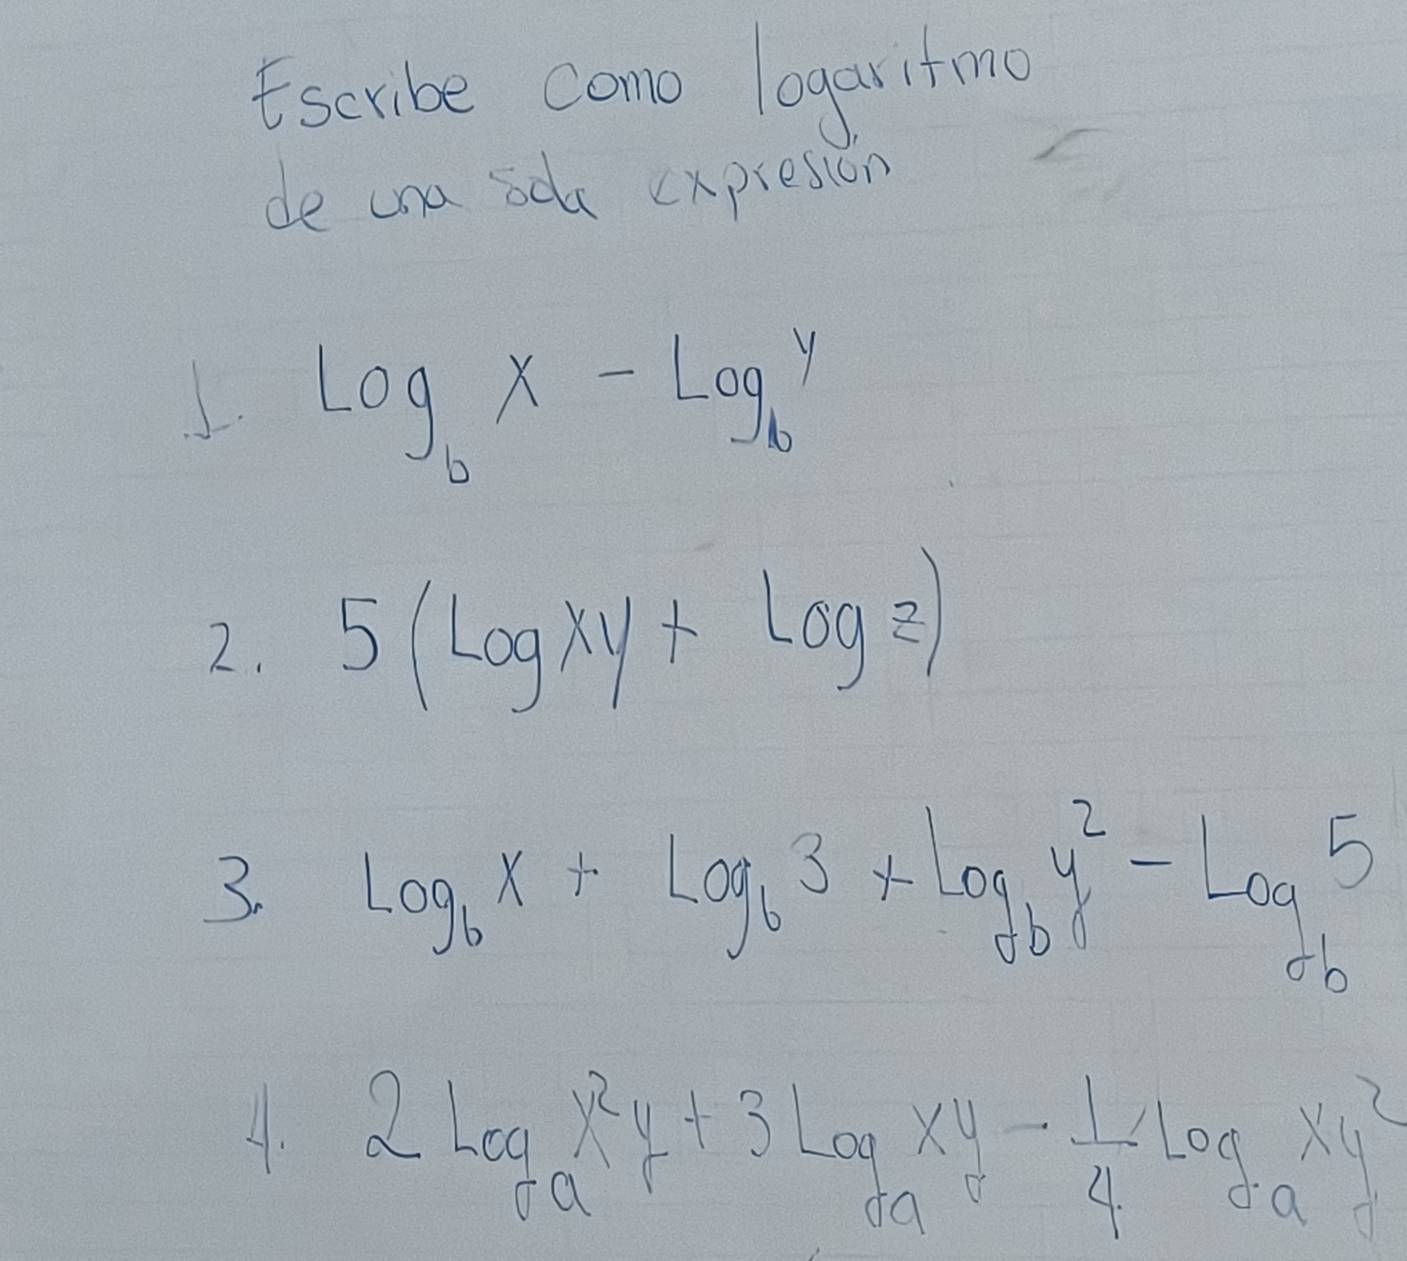 Escribe como logaritmo
de una sola expresión
1. Log_b x - Log_b y
2. 5 (Log xy + Log z)
3. Log_b x + Log_b 3 + Log_b y² - Log_b 5
4. 2 Log_a x²y + 3 Log_a xy - 1/4 Log_a xy²